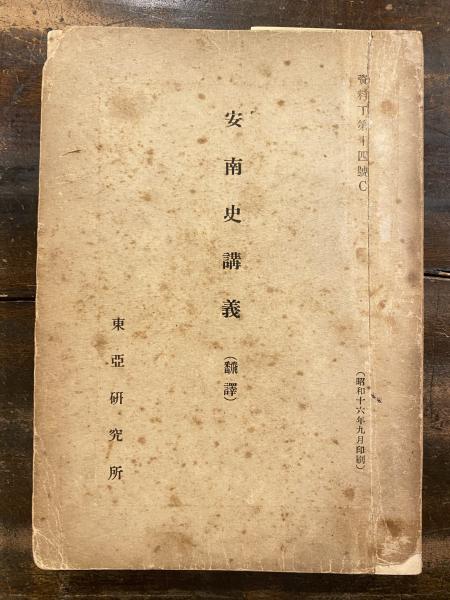 資料丁第十四號C
(昭和十六年九月印刷)
安南史講義(飜譯)
東亞研究所